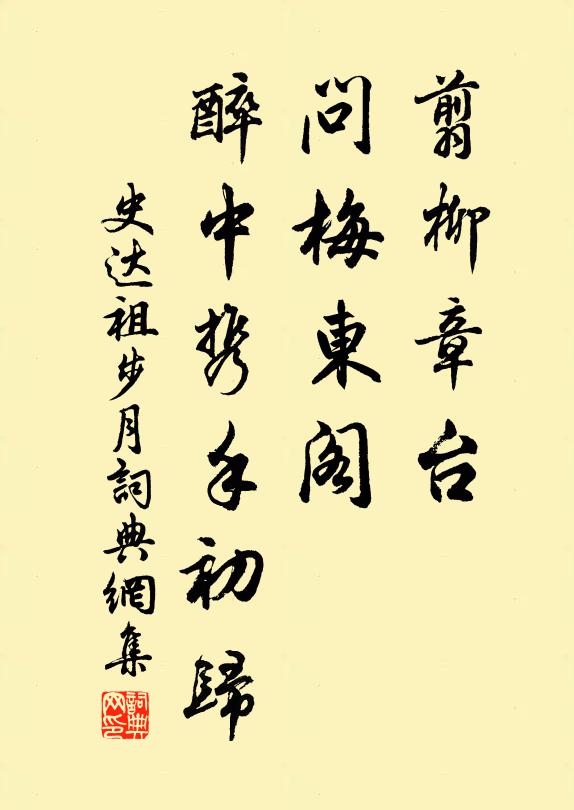 翦柳章台
問梅東阁
醉中携手初歸
史达祖步月詞典網集
詞典网印